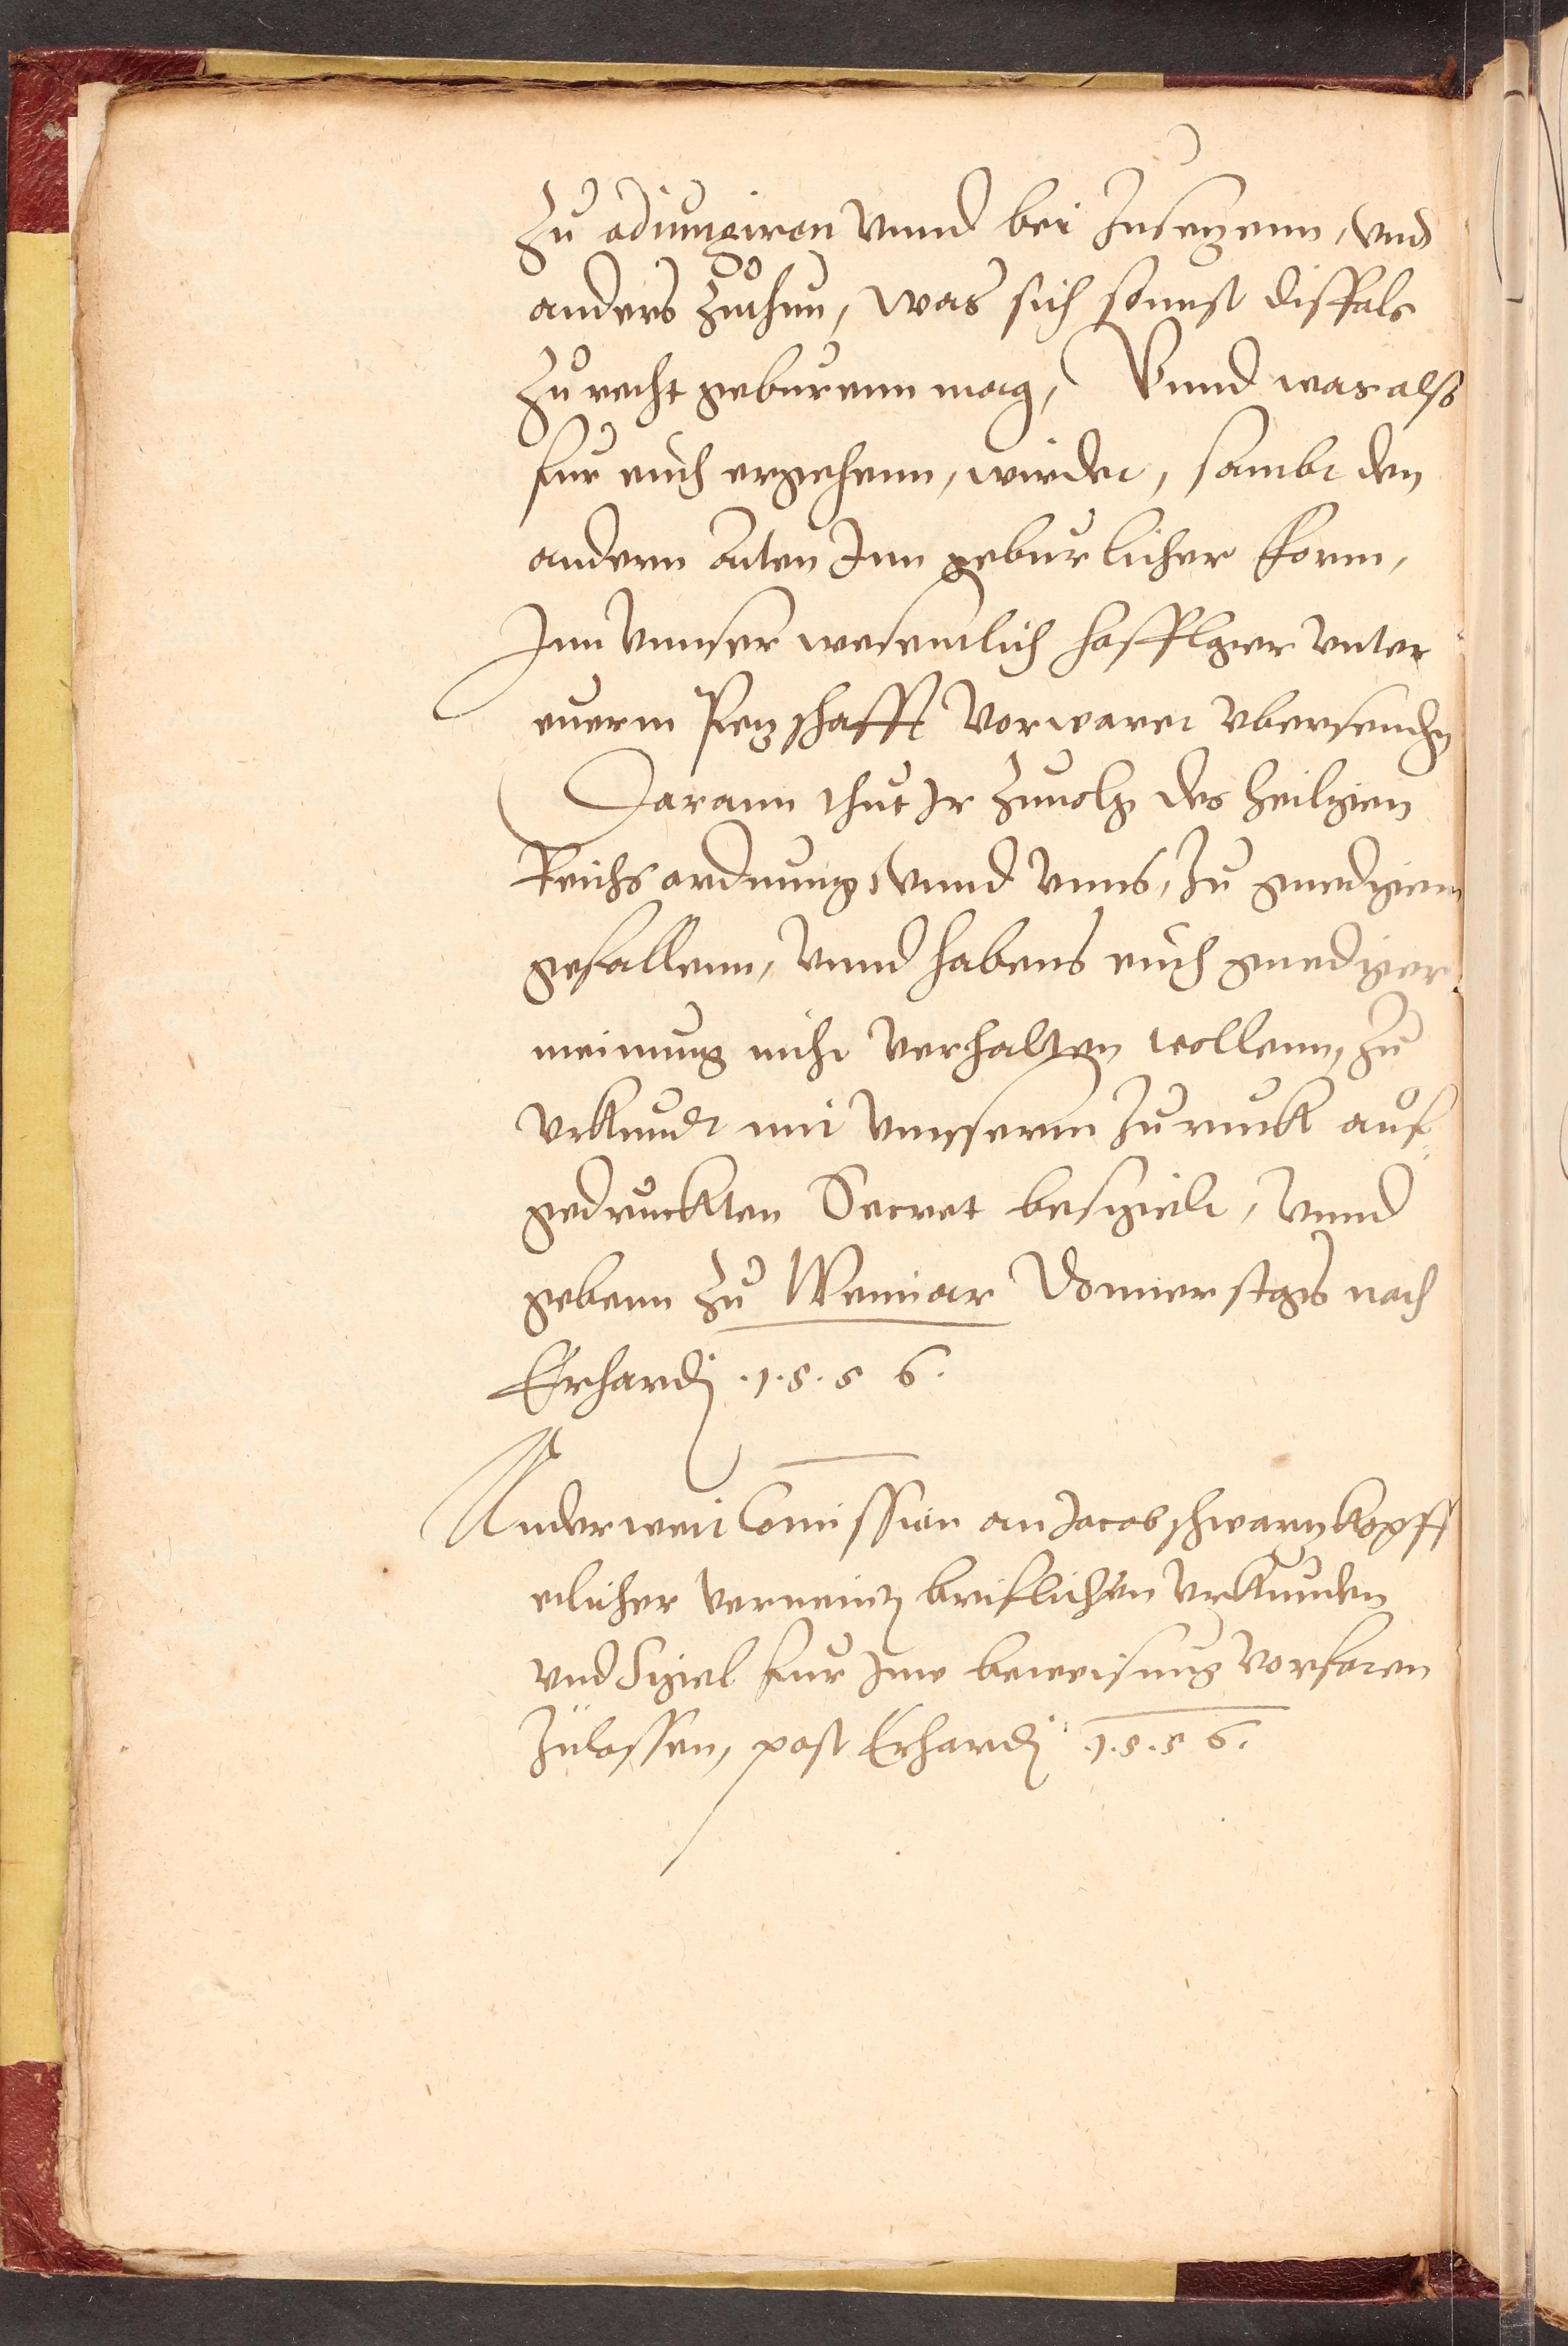 Zu adiungiren vnnd bei Zusetzenn, vnd
anders Zuthun, was sich sonnst disfals
Zu recht geburenn mag, Vnnd was also
fur euch ergehenn, wirdet, sambt den
andern Acten Inn geburlicher form,
Inn vnnser wesenntlich hofflger vnter
euerm Petzschafft vorwaret vbersenden
Darann thut Ir Zuuolg des heilgien
Reichs ordnung, vnnd vnns, Zu gnedigem
gefallenn, vnnd habens euch gnediger
meinung nicht verhalten wollenn, Zu
vrkundt mit vnnserm Zuruck auf-
gedruckten Secret besigelt, vnnd
gebenn Zu Weimar Donnerstags nach
Erhardj .1.5.5 6.
Anderweit Comission an Jacob schwartzkopff
etlicher vermeintz brieflichen vrkunden
vnd Sigel fur Ime beweisung vorfaren
Zulassen, post Erhardj .1.5.5 6.